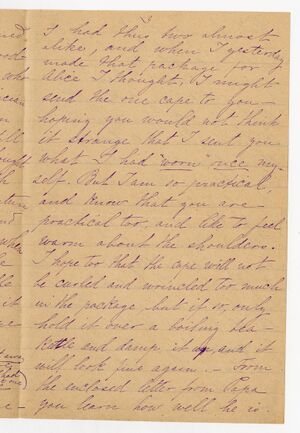 3
I had thus two almost
alike, and when I yesterday
made that package for
Alice I thought, I might
send the one cape to you —
hoping you would not think
it strange that I sent you
what I had "worn" once my-
self. But I am so practical,
and know that you are
practical too, and like to feel
warm about the shoulders.
I hope too that the cape will not
be curled and wrincled too much
in the package, but if so, only
hold it over a boiling tea-
kettle and damp it up, and it
will look fine again. — From
the enclosed letter from Papa
you learn how well he is.
who
it